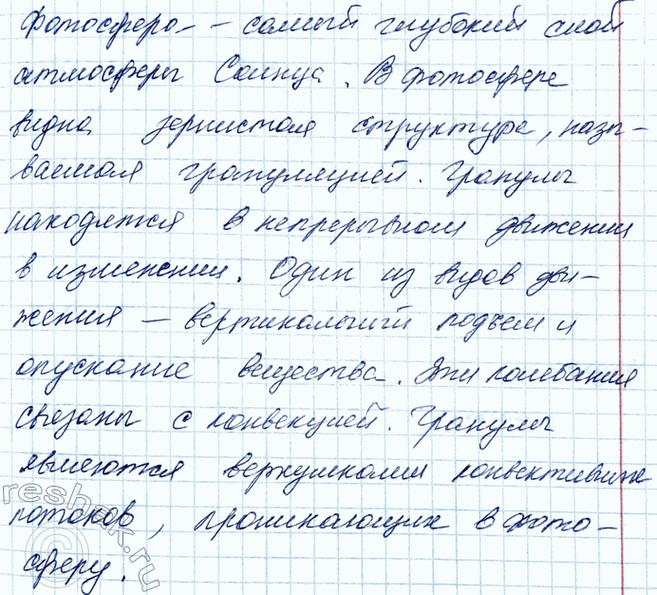 Фотосфера – самый глубокий слой
атмосферы Солнца. В фотосфере
видна зернистая структура, назы-
ваемая грануляцией. Гранулы
находятся в непрерывном движении
в изменении. Один из видов дви-
жения – вертикальный подъем и
опускание вещества. Эти колебания
связаны с конвекцией. Гранулы
являются верхушками конвективных
потоков, проникающих в фото-
сферу.
reshak.ru